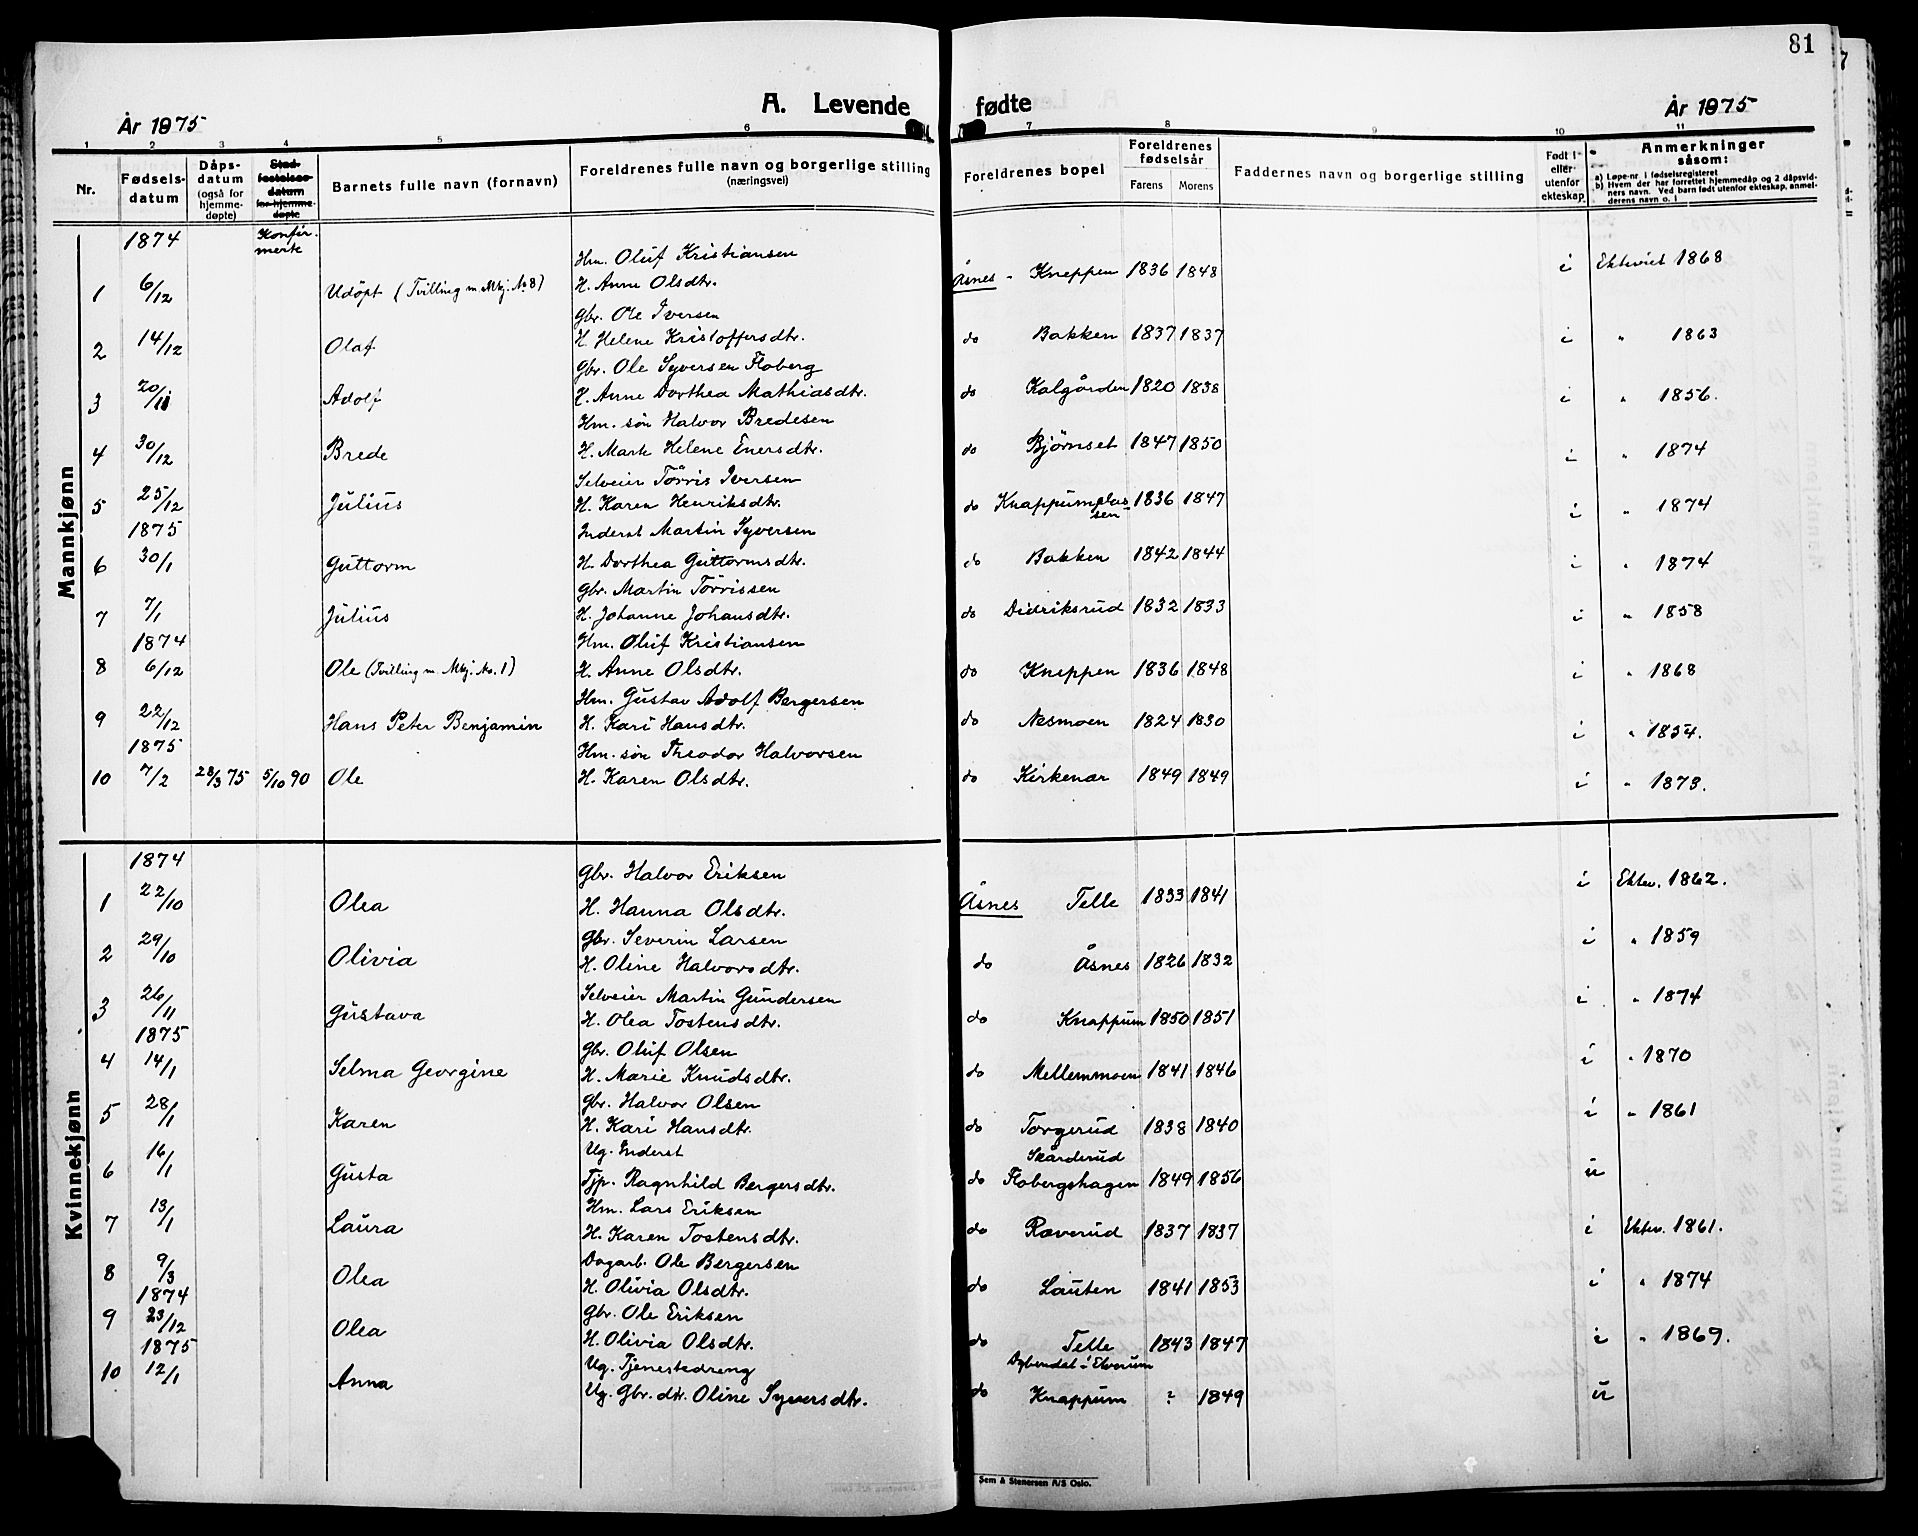 81
A. Levende fødte
År 1875
År 1875
1 2 3 4 5 6 7 8 9 10 11
Nr.
Fødsels-datum
Dåps-datum (også for hjemme-døpte)
Stad-festelses-datum for hjemme-døpte
Barnets fulle navn (fornavn)
Foreldrenes fulle navn og borgerlige stilling (næringsvei)
Foreldrenes bopel
Foreldrenes fødselsår
Farens Morens
Faddernes navn og borgerlige stilling
Født i eller utenfor ekteskap
Anmerkninger såsom:
a) Løpe-nr. i fødselsregisteret
b) Hvem der har forrettet hjemmedåp og 2 dåpsvidners navn. Ved barn født utenfor ekteskap, anmelderens navn o. l
Mannkjønn
1874 Konfirmerte
Hm. Oluf Kristiansen
1 6/12 Udöpt (Tvilling m. Mkj. No 8) H. Anne Olsdtr. Åsnes - Kneppen 1836 1848 i Ekteviet 1868
Gbr. Ole Iversen
2 14/12 Olaf H. Helene Kristoffersdtr. do Bakken 1837 1837 i " 1863
Gbr. Ole Syversen Floberg
3 20/11 Adolf H. Anne Dorthea Mathiasdtr. do Kalgården 1820 1838 i " 1856.
Hm. søn Halvor Bredesen
4 30/12 Brede H. Marte Helene Enersdtr. do Bjørnset 1847 1850 i " 1874
Selveier Törris Iversen
5 25/12 Julius H. Karen Henriksdtr. do Knappum 1836 1847 i " 1874
1875 Inderst Martin Syversen
6 30/1 Guttorm H. Dorthea Guttormsdtr. do Bakken 1842 1844 i " 1874
Gbr. Martin Törrissen
7 7/1 Julius H. Johanne Johansdtr. do Didriksrud 1832 1833 i " 1858
1874 Hm. Oluf Kristiansen
8 6/12 Ole (Tvilling m. Mkj. No. 1) H. Anne Olsdtr. do Kneppen 1836 1848 i " 1868
Hm. Gustav Adolf Bergersen
9 22/12 Hans Peter Benjamin H. Kari Hansdtr. do Nesmoen 1824 1830 i " 1854.
1875 Hm. søn Theodor Halvorsen
10 7/2 28/3 75 5/10 90 Ole H. Karen Olsdtr. do Kirkenær 1849 1849 i " 1873.
Kvinnekjønn
1874 Gbr. Halvor Eriksen
1 22/10 Olea H. Hanna Olsdtr. Åsnes Telle 1833 1841 i Ektev. 1862.
Gbr. Severin Larsen
2 29/10 Olivia H. Oline Halvorsdtr. do Åsnes 1826 1832 i " 1859
Selveier Martin Gundersen
3 26/11 Gustava H. Olea Tostensdtr. do Knappum 1850 1851 i " 1874
1875 Gbr. Oluf Olsen
4 14/1 Selma Georgine H. Marie Knudsdtr. do Mellemmoen 1841 1846 i " 1870
Gbr. Halvor Olsen
5 28/1 Karen H. Kari Hansdtr. do Torgerud 1838 1840 i " 1861
Ug. Inderst Skårderud
6 16/1 Gusta Tjp. Ragnhild Bergersdtr. do Flobergshagen 1849 1856 u
Hm. Lars Eriksen
7 13/1 Laura H. Karen Tostensdtr. do Ræverud 1837 1837 i Ektev. 1861.
Dagarb. Ole Bergersen
8 9/3 Olea H. Olivia Olsdtr. do Lauten 1841 1853 i " 1874
1874 Gbr. Ole Eriksen
9 23/12 Olea H. Olivia Olsdtr. do Telle 1843 1847 i " 1869.
1875 Ug. Tjenestedreng Dybendal i Elverum
10 12/1 Anna Ug. Gbr. dtr. Oline Syversdtr. do Knappum ? 1849 u
Sem & Stenersen A/S Oslo.